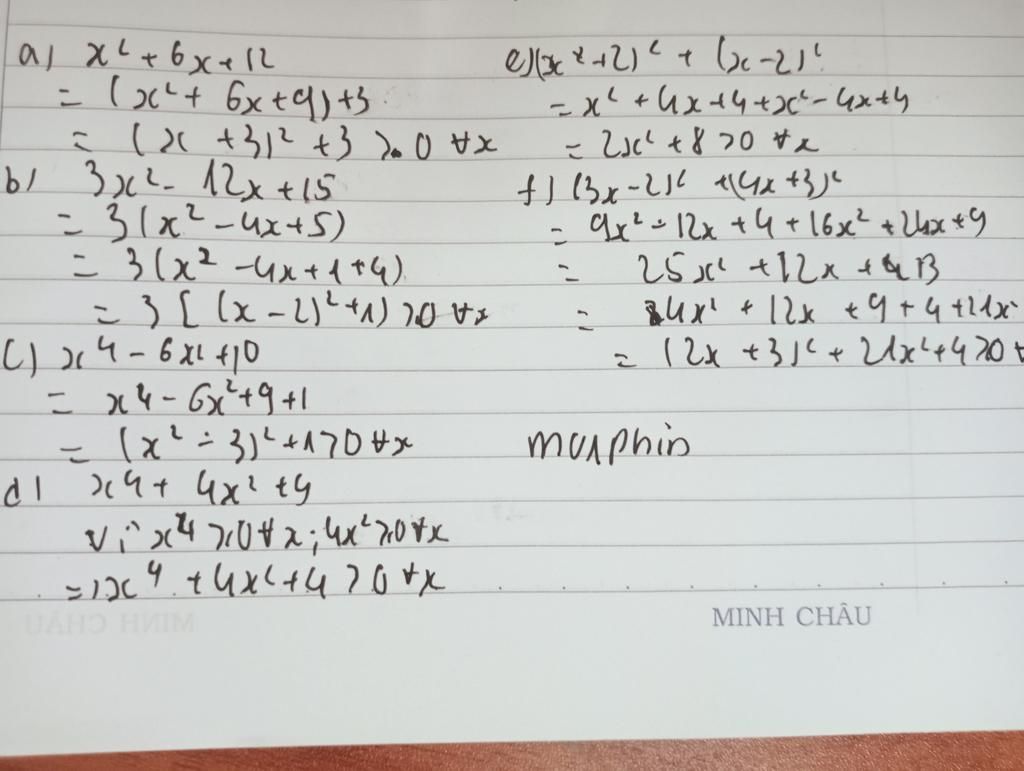 a) x² + 6x + 12
= (x² + 6x + 9) + 3
= (x + 3)² + 3 > 0 ∀x
b) 3x² - 12x + 15
= 3(x² - 4x + 5)
= 3(x² - 4x + 1 + 4)
= 3 [ (x - 2)² + 1) > 0 ∀x
c) x⁴ - 6x² + 10
= x⁴ - 6x² + 9 + 1
= (x² - 3)² + 1 > 0 ∀x
d) x⁴ + 4x² + 4
vì x⁴ ≥ 0 ∀x; 4x² ≥ 0 ∀x
=> x⁴ + 4x² + 4 > 0 ∀x
e) (x + 2)² + (x - 2)²
= x² + 4x + 4 + x² - 4x + 4
= 2x² + 8 > 0 ∀x
f) (3x - 2)² + (4x + 3)²
= 9x² - 12x + 4 + 16x² + 24x + 9
= 25x² + 12x + 13
= 4x² + 12x + 9 + 4 + 21x²
= (2x + 3)² + 21x² + 4 > 0 ∀
morphin
MINH CHÂU